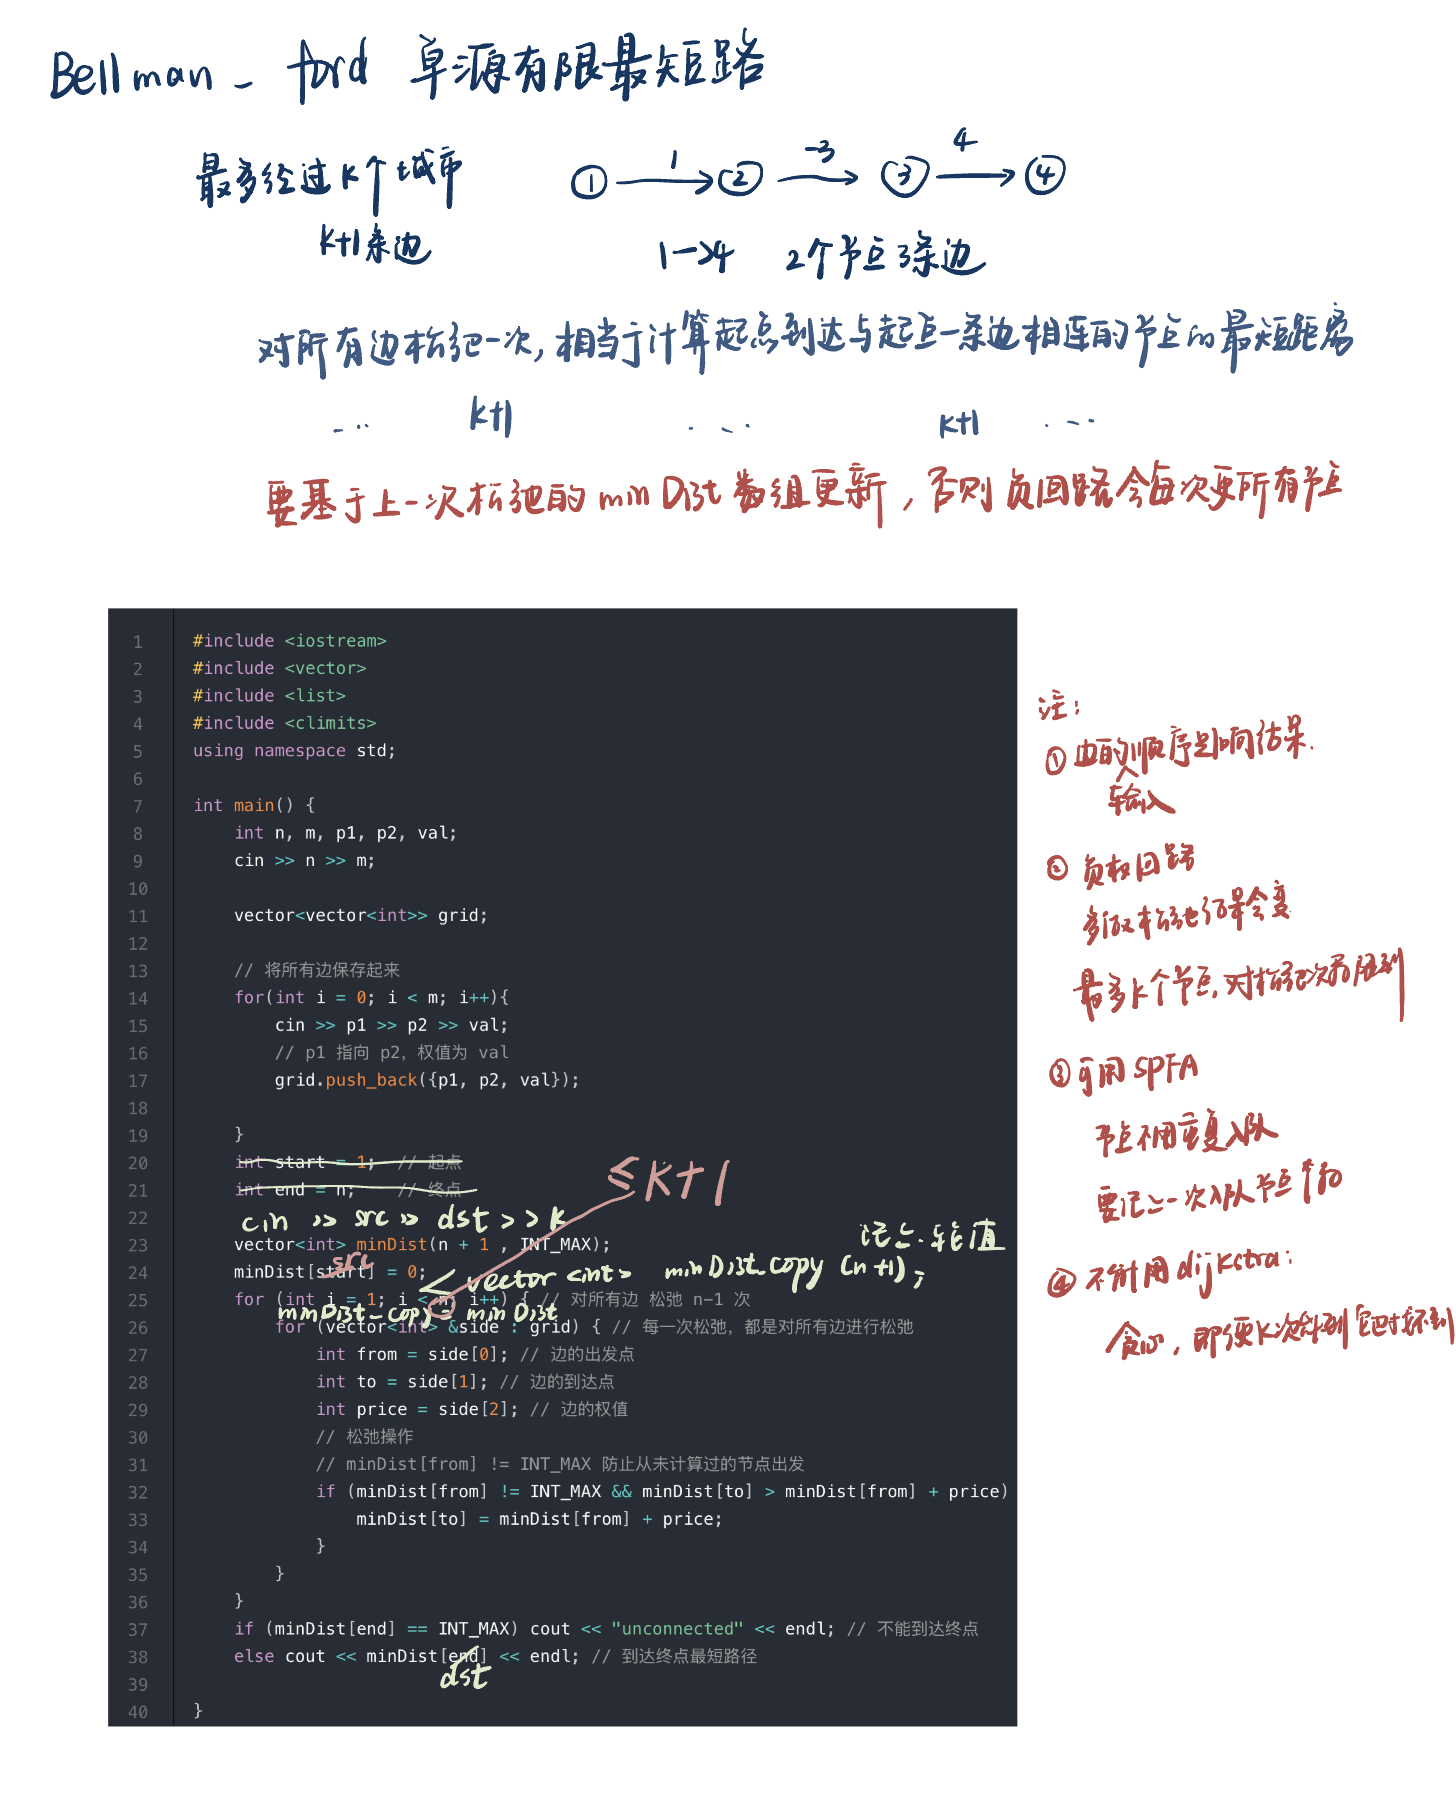 Bellman - ford 单源有限最短路
最多经过k个城市
k+1条边
① 1 ② -3 ③ 4 ④
1→4 2个节点 3条边
对所有边松弛一次, 相当于计算起点到达与起点一条边相连的节点的最短距离
... k+1 ... k+1 ...
要基于上一次松弛的 minDist 数组更新, 否则负回路会每次更所有节点
1 #include <iostream>
2 #include <vector>
3 #include <list>
4 #include <climits>
5 using namespace std;
6
7 int main() {
8 int n, m, p1, p2, val;
9 cin >> n >> m;
10
11 vector<vector<int>> grid;
12
13 // 将所有边保存起来
14 for(int i = 0; i < m; i++){
15 cin >> p1 >> p2 >> val;
16 // p1 指向 p2, 权值为 val
17 grid.push_back({p1, p2, val});
18
19 }
20 int start = 1; // 起点
21 int end = n; // 终点
≤k+1
22 cin >> src >> dst >> k
23 vector<int> minDist(n + 1 , INT_MAX);
src
24 minDist[start] = 0;
vector <int> minDist_copy (n+1);
25 for (int i = 1; i < n; i++) { // 对所有边 松弛 n-1 次
minDist_copy = minDist
26 for (vector<int> &side : grid) { // 每一次松弛，都是对所有边进行松弛
27 int from = side[0]; // 边的出发点
28 int to = side[1]; // 边的到达点
29 int price = side[2]; // 边的权值
30 // 松弛操作
31 // minDist[from] != INT_MAX 防止从未计算过的节点出发
32 if (minDist[from] != INT_MAX && minDist[to] > minDist[from] + price)
33 minDist[to] = minDist[from] + price;
34 }
35 }
36 }
37 if (minDist[end] == INT_MAX) cout << "unconnected" << endl; // 不能到达终点
38 else cout << minDist[end] << endl; // 到达终点最短路径
dst
39
40 }
注:
① 边的顺序影响结果.
输入
② 负权回路
多做松弛结果会变
最多k个节点, 对松弛次有限制
③ 可用 SPFA
节点不用重复入队
要记上一次入队节点个数
④ 不能用 dijkstra:
贪心, 即便k次